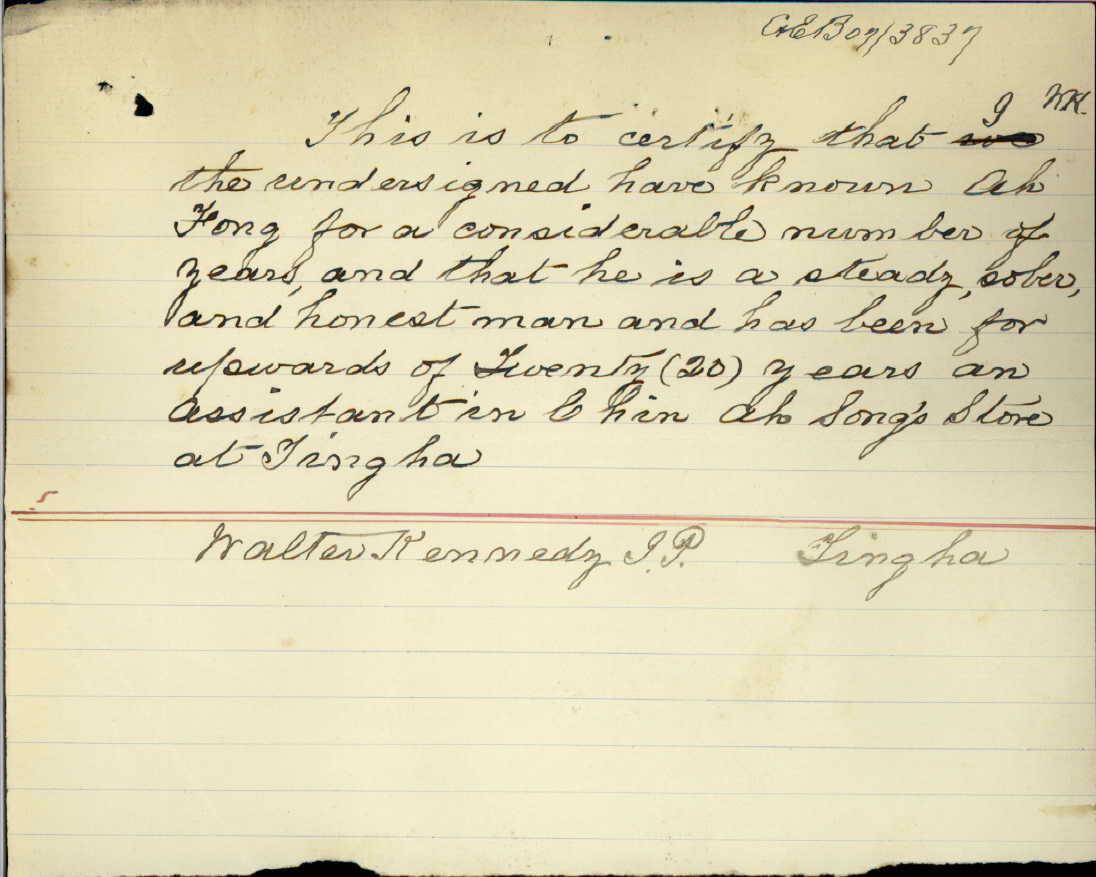 C&E B 07/3837
I WK.
This is to certify that we
the undersigned have known Ah
Fong for a considerable number of
years, and that he is a steady, sober,
and honest man and has been for
upwards of Twenty (20) years an
assistant in Chin Ah Song's Store
at Tingha
5
Walter Kennedy J.P. Tingha